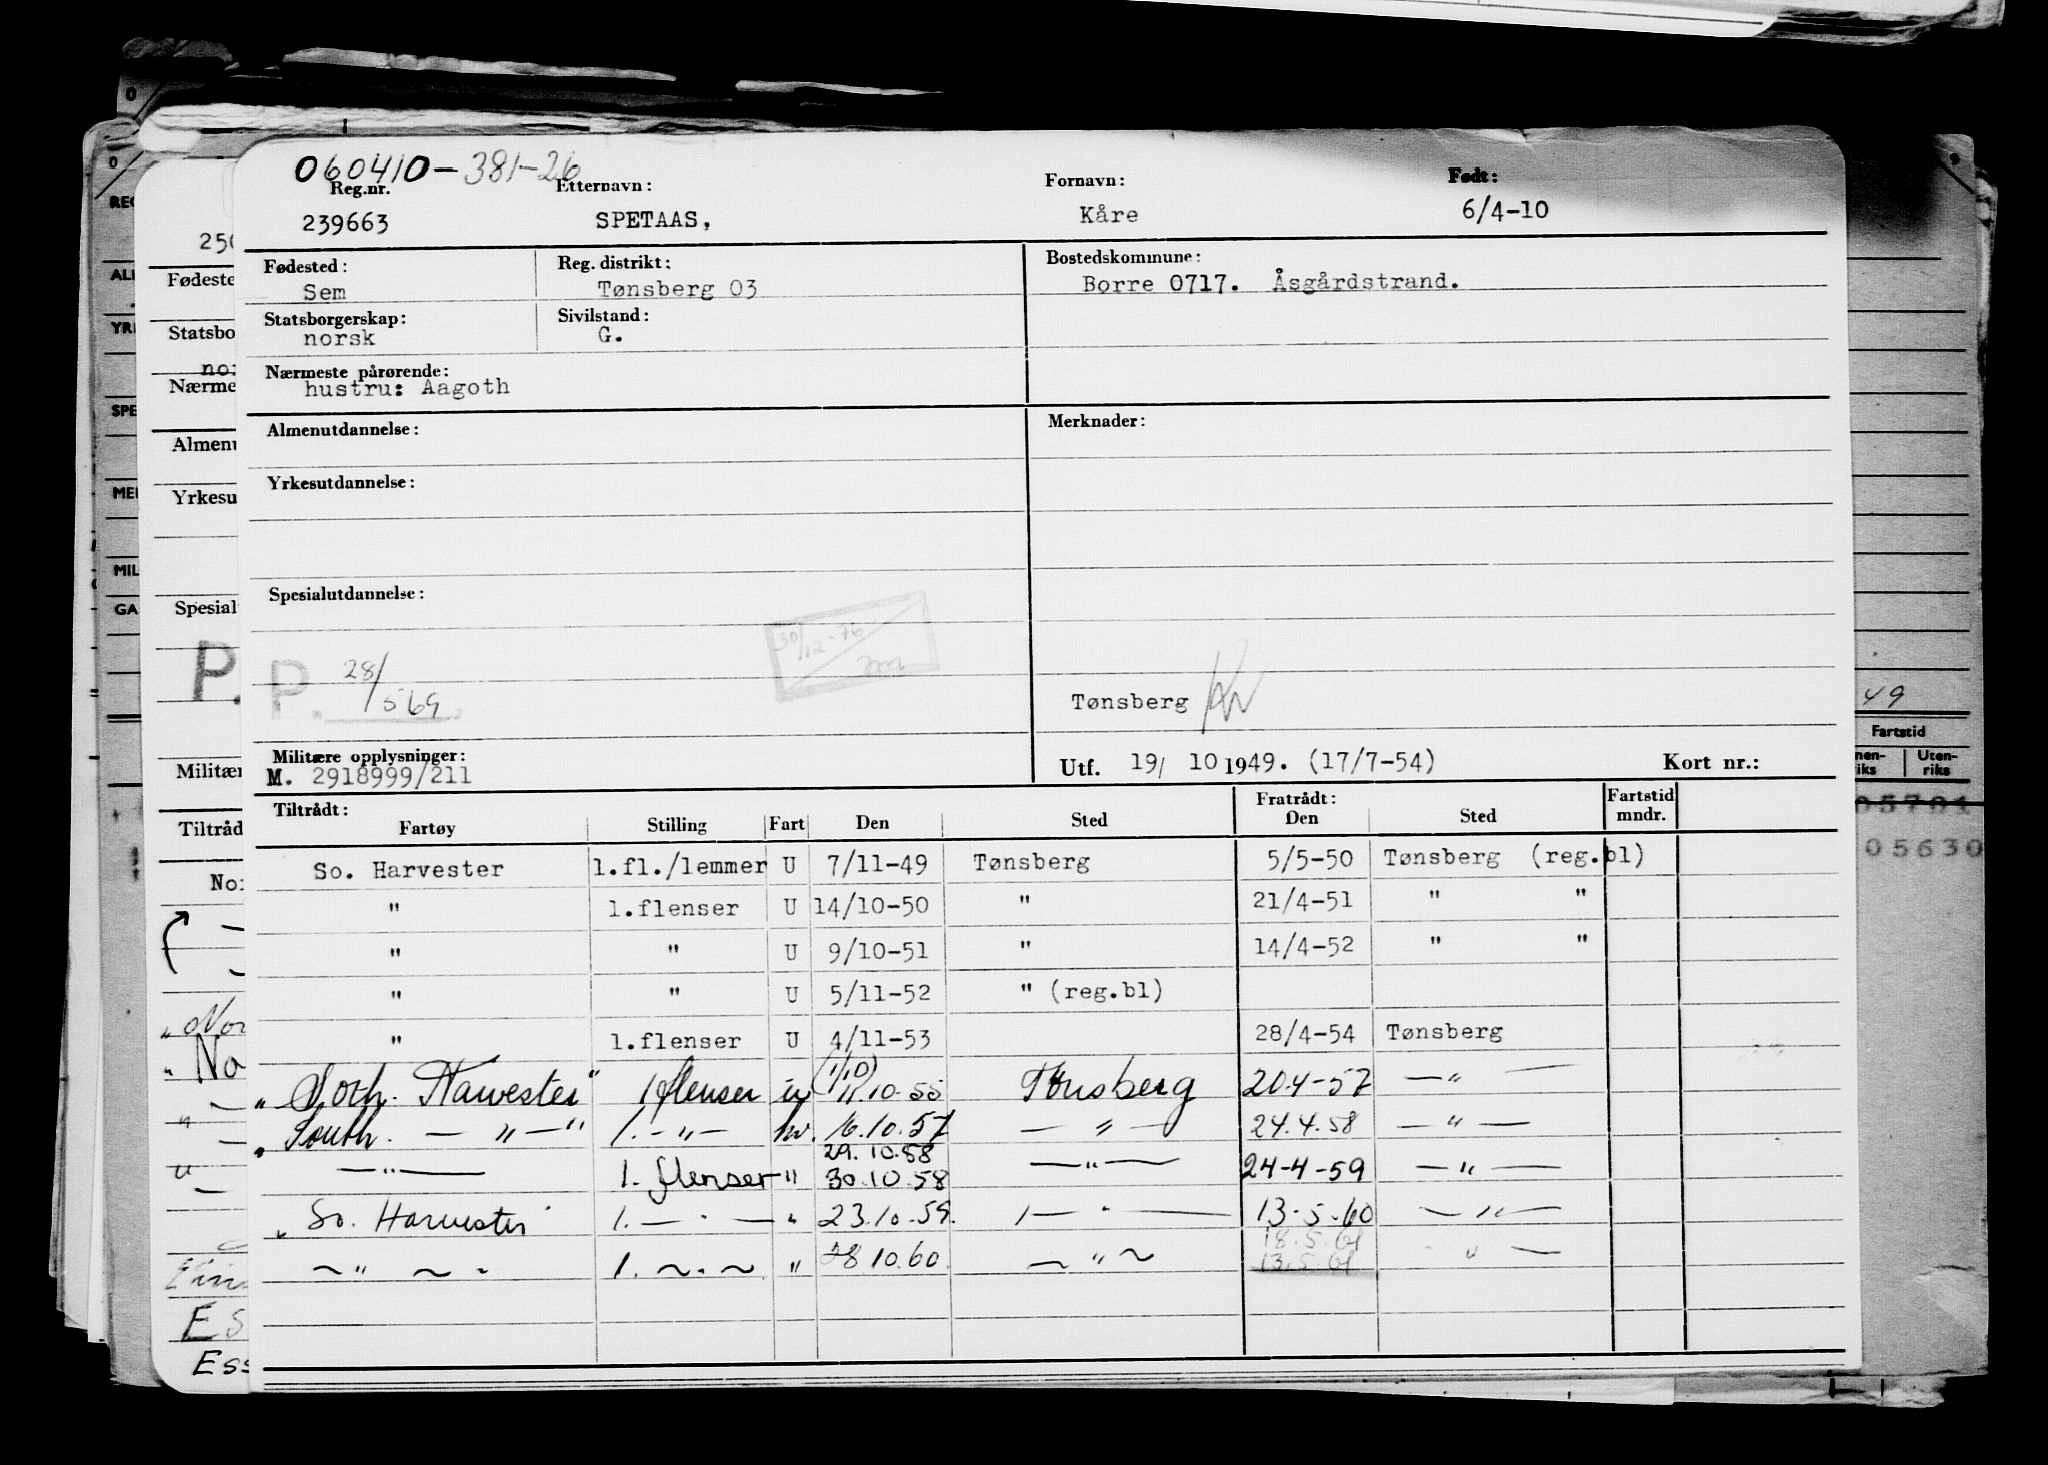 060410-381-26
Reg.nr. Etternavn: Fornavn: Født:
239663 SPETAAS, Kåre 6/4-10
Fødested: Reg. distrikt: Bostedskommune:
Sem Tønsberg 03 Borre 0717. Åsgårdstrand.
Statsborgerskap: Sivilstand:
norsk G.
Nærmeste pårørende:
hustru: Aagoth
Almenutdannelse: Merknader:
Yrkesutdannelse:
Spesialutdannelse:
30/12-76
P. 28/569
Tønsberg
Militære opplysninger:
M. 2918999/211
Utf. 19/ 10 1949. (17/7-54) Kort nr.:
Tiltrådt: Fratrådt: Fartstid
Fartøy Stilling Fart Den Sted Den Sted mndr.
So. Harvester 1.fl./lemmer U 7/11-49 Tønsberg 5/5-50 Tønsberg (reg.bl)
" 1.flenser U 14/10-50 " 21/4-51 " "
" " U 9/10-51 " 14/4-52 " "
" " U 5/11-52 " (reg.bl)
" 1.flenser U 4/11-53 28/4-54 Tønsberg
(1/10)
"Soth. Harvester" 1 flenser 11.10.55 Tønsberg 20.4-57 — " —
"South. — " —" 1. — " — hv. 16.10.57 — " — 24.4.58 — " —
29.10.58
— " — 1. flenser " 30.10.58 — " — 24-4-59 — " —
"So. Harvester" 1. — " — " 23.10.59. — " — 13-5-60 — " —
18.5.61
~ " ~ " 1. ~ " ~ " 28.10.60 ~ " ~ 13.5.61 " —
Fødeste
Statsbo
Nærme
Almenu
Yrkesu
Spesial
P.
Militær
Tiltråd
Nor
No
Es
Ess
REG
ALM
YRK
SPE
MER
MIL
GA
49
Fartstid
nen-riks Uten-riks
05701
05630